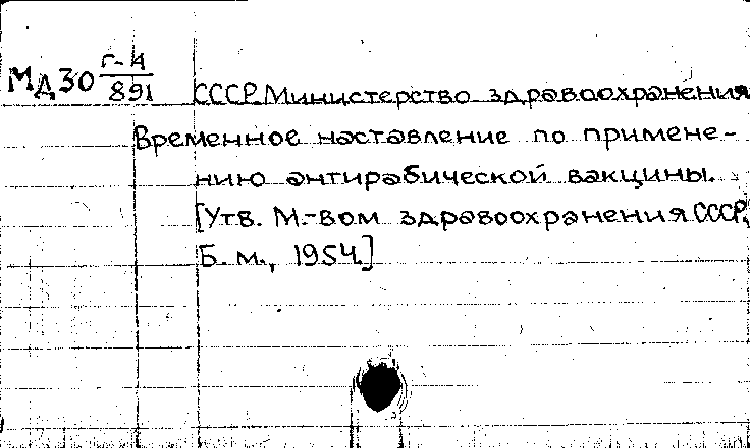 МД30 Г-4/891
СССР. Министерство здравоохранения
Временное наставление по примене-
нию антирабической вакцины.
[Утв. М.-вом здравоохранения СССР,
Б. м., 1954.]